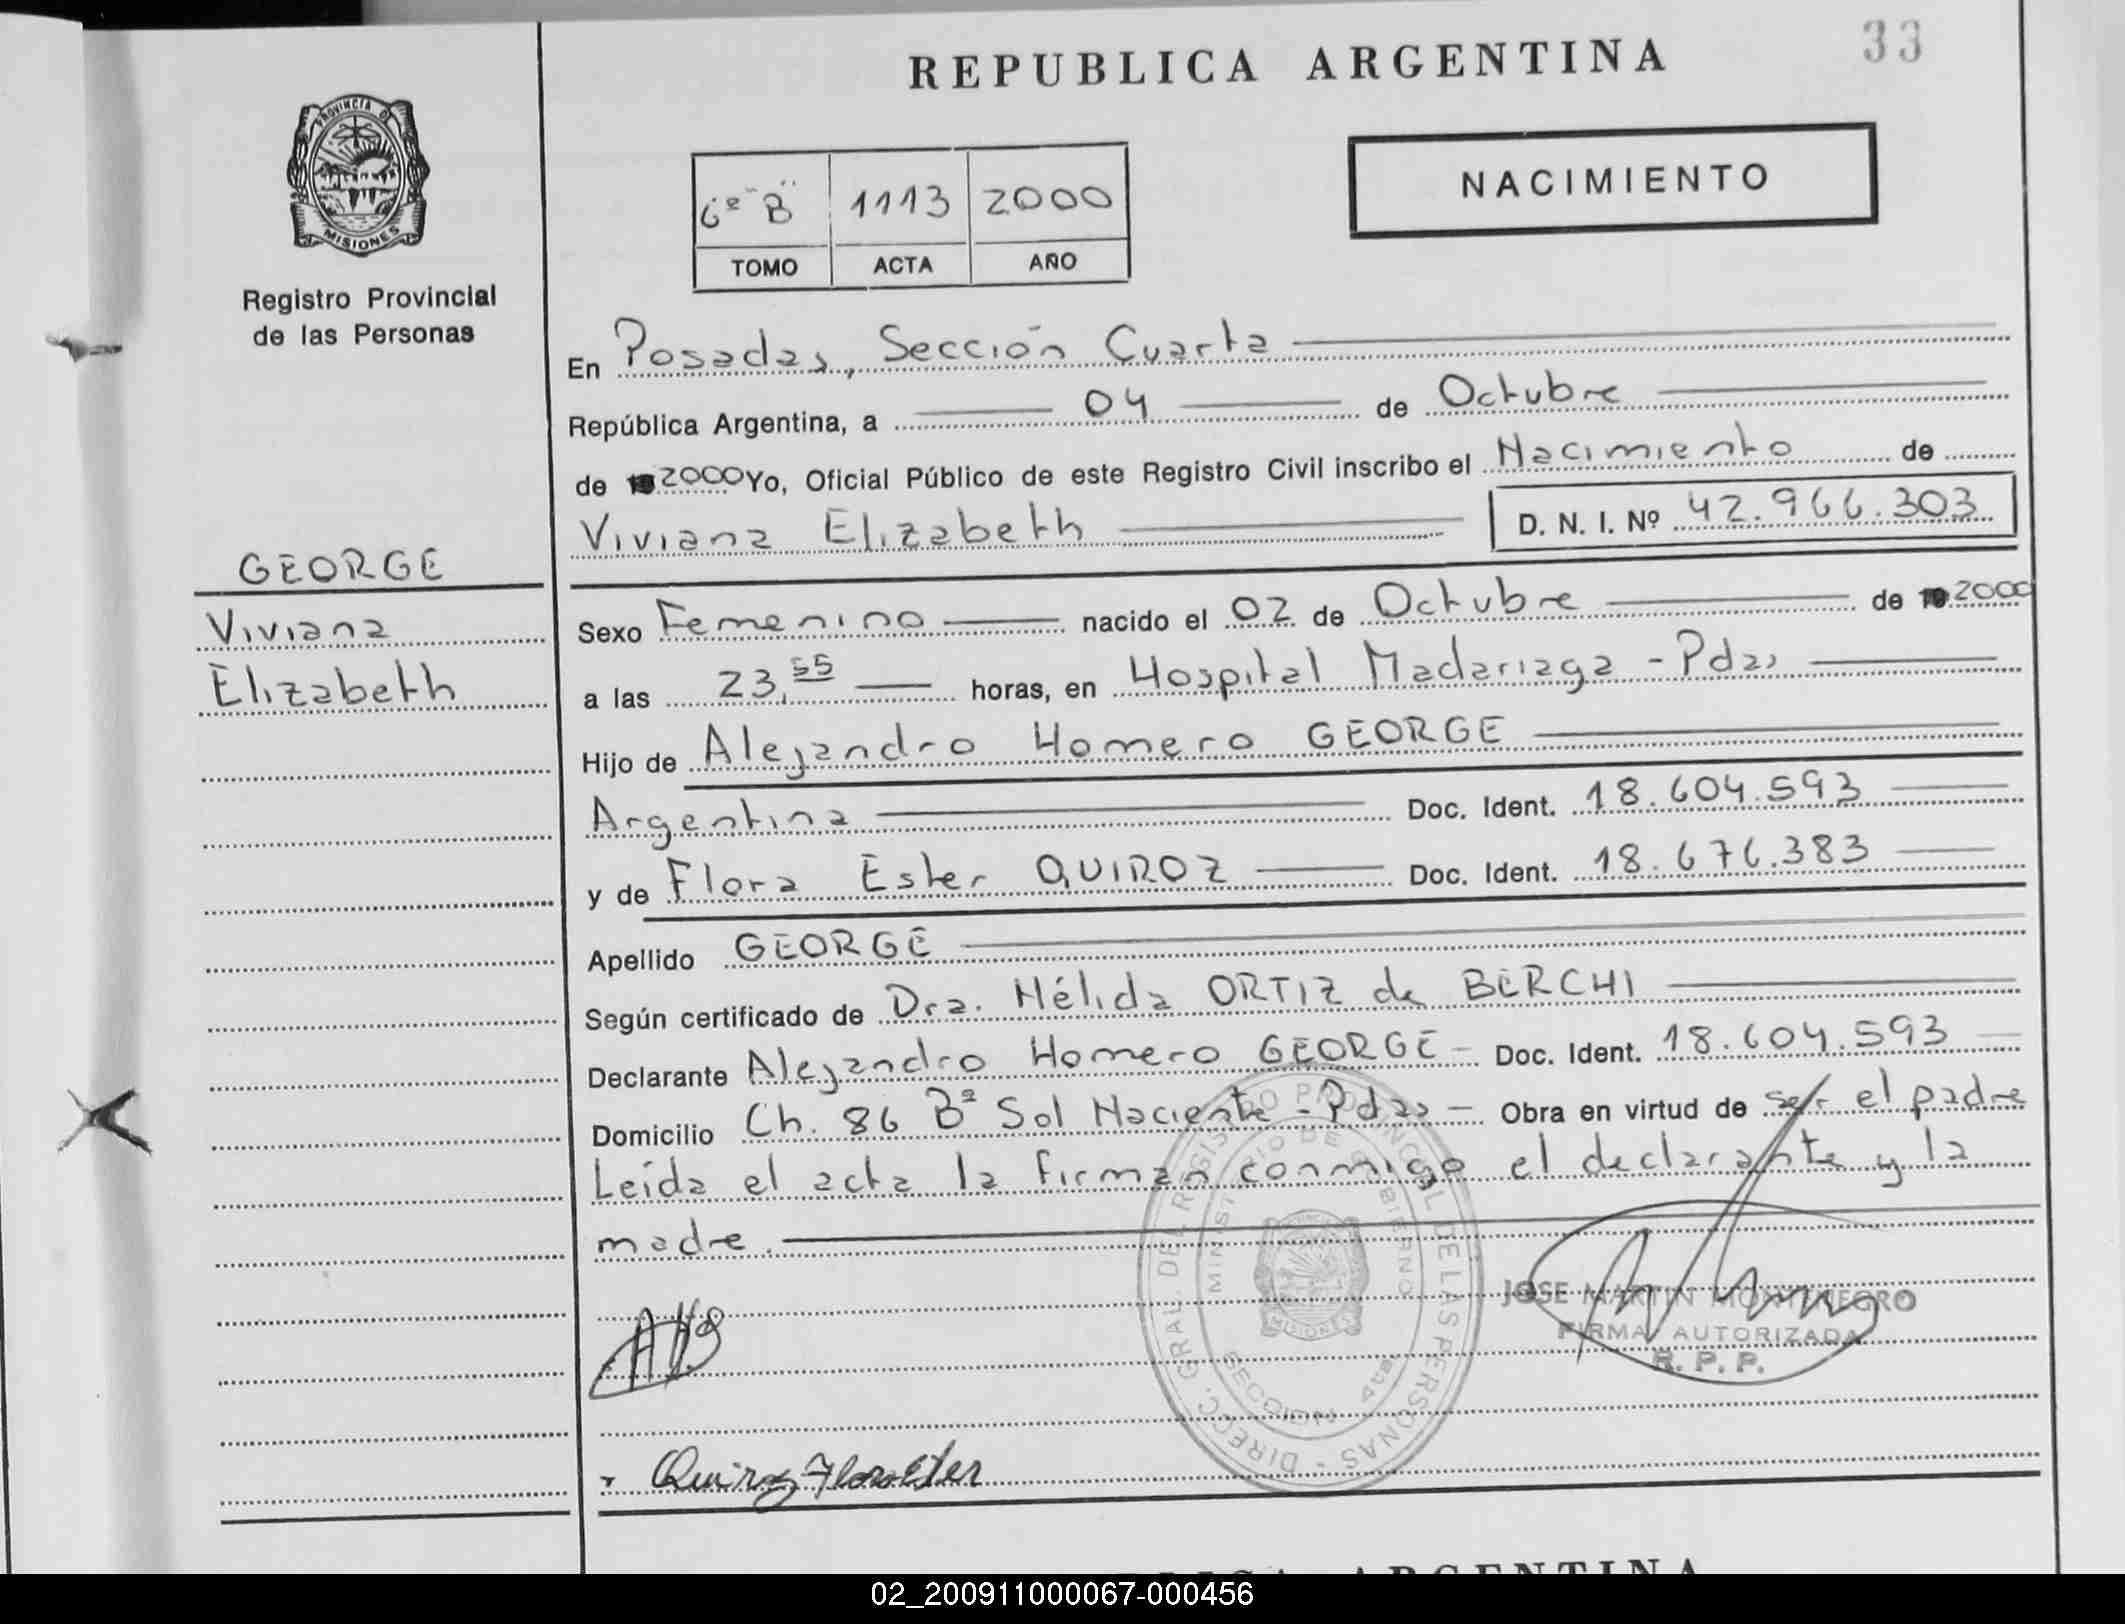 REPUBLICA ARGENTINA
33
PROVINCIA DE
MISIONES
Registro Provincial
de las Personas
6º "B" 1113 2000
TOMO ACTA AÑO
NACIMIENTO
En Posadas, Sección Cuarta
República Argentina, a 04 de Octubre
de 2000 Yo, Oficial Público de este Registro Civil inscribo el Nacimiento de
Viviana Elizabeth D. N. I. Nº 42.966.303
GEORGE
Viviana
Elizabeth
Sexo Femenino nacido el 02 de Octubre de 2000
a las 23,55 horas, en Hospital Madariaga - Pdas
Hijo de Alejandro Homero GEORGE
Argentina Doc. Ident. 18.604.593
y de Flora Ester QUIROZ Doc. Ident. 18.676.383
Apellido GEORGE
Según certificado de Dra. Nélida ORTIZ de BERCHI
Declarante Alejandro Homero GEORGE - Doc. Ident. 18.604.593
Domicilio Ch. 86 Bº Sol Naciente - Pdas - Obra en virtud de ser el padre
Leída el acta la firman conmigo el declarante y la
madre.
DIRECC. GRAL. DEL REGISTRO PROVINCIAL DE LAS PERSONAS -
MINISTERIO DE GOBIERNO
MISIONES
SECCION 4ta
JOSE MARTIN MONTENEGRO
FIRMA AUTORIZADA
R. P. P.
AHG
Quiroz Flora Ester
REPUBLICA ARGENTINA
02_200911000067-000456